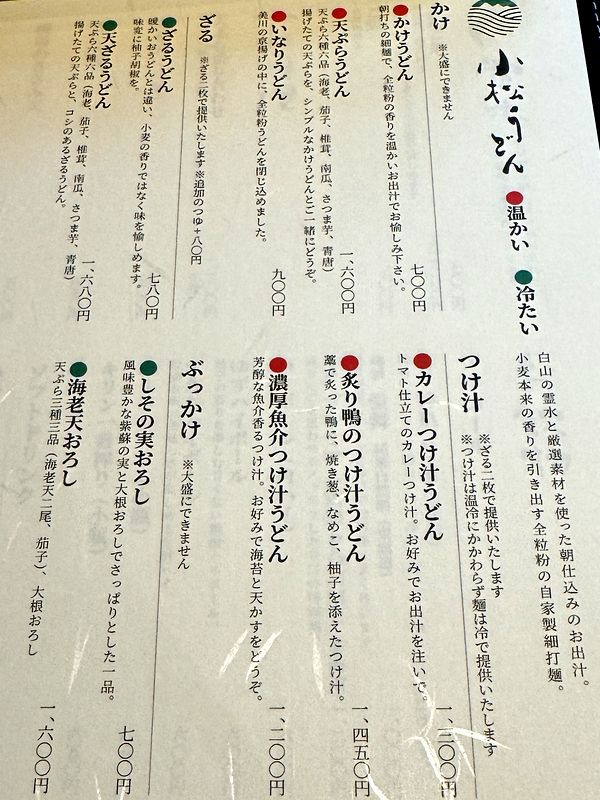 小松うどん
●温かい ●冷たい
白山の霊水と厳選素材を使った朝仕込みのお出汁。
小麦本来の香りを引き出す全粒粉の自家製細打麺。
かけ ※大盛にできません
●かけうどん
朝打ちの細麺で、全粒粉の香りを温かいお出汁でお愉しみ下さい。
七〇〇円
●天ぷらうどん
天ぷら六種六品（海老、茄子、椎茸、南瓜、さつま芋、青唐）
揚げたての天ぷらを、シンプルなかけうどんとご一緒にどうぞ。
一、六〇〇円
●いなりうどん
美川の京揚げの中に、全粒粉うどんを閉じ込めました。
九〇〇円
ざる ※ざる二枚で提供いたします ※追加のつゆ+八〇円
●ざるうどん
暖かいおうどんとは違い、小麦の香りではなく味を愉しめます。
味変に柚子胡椒を。
七八〇円
●天ざるうどん
天ぷら六種六品（海老、茄子、椎茸、南瓜、さつま芋、青唐）
揚げたての天ぷらと、コシのあるざるうどん。
一、六八〇円
つけ汁 ※ざる二枚で提供いたします
※つけ汁は温冷にかかわらず麺は冷で提供いたします
●カレーつけ汁うどん
トマト仕立てのカレーつけ汁。お好みでお出汁を注いで。
一、三〇〇円
●炙り鴨のつけ汁うどん
藁で炙った鴨に、焼き葱、なめこ、柚子を添えたつけ汁。
一、四五〇円
●濃厚魚介つけ汁うどん
芳醇な魚介香るつけ汁。お好みで海苔と天かすをどうぞ。
一、二〇〇円
ぶっかけ ※大盛にできません
●しその実おろし
風味豊かな紫蘇の実と大根おろしでさっぱりとした一品。
七〇〇円
●海老天おろし
天ぷら三種三品（海老天二尾、茄子）、大根おろし
一、六〇〇円